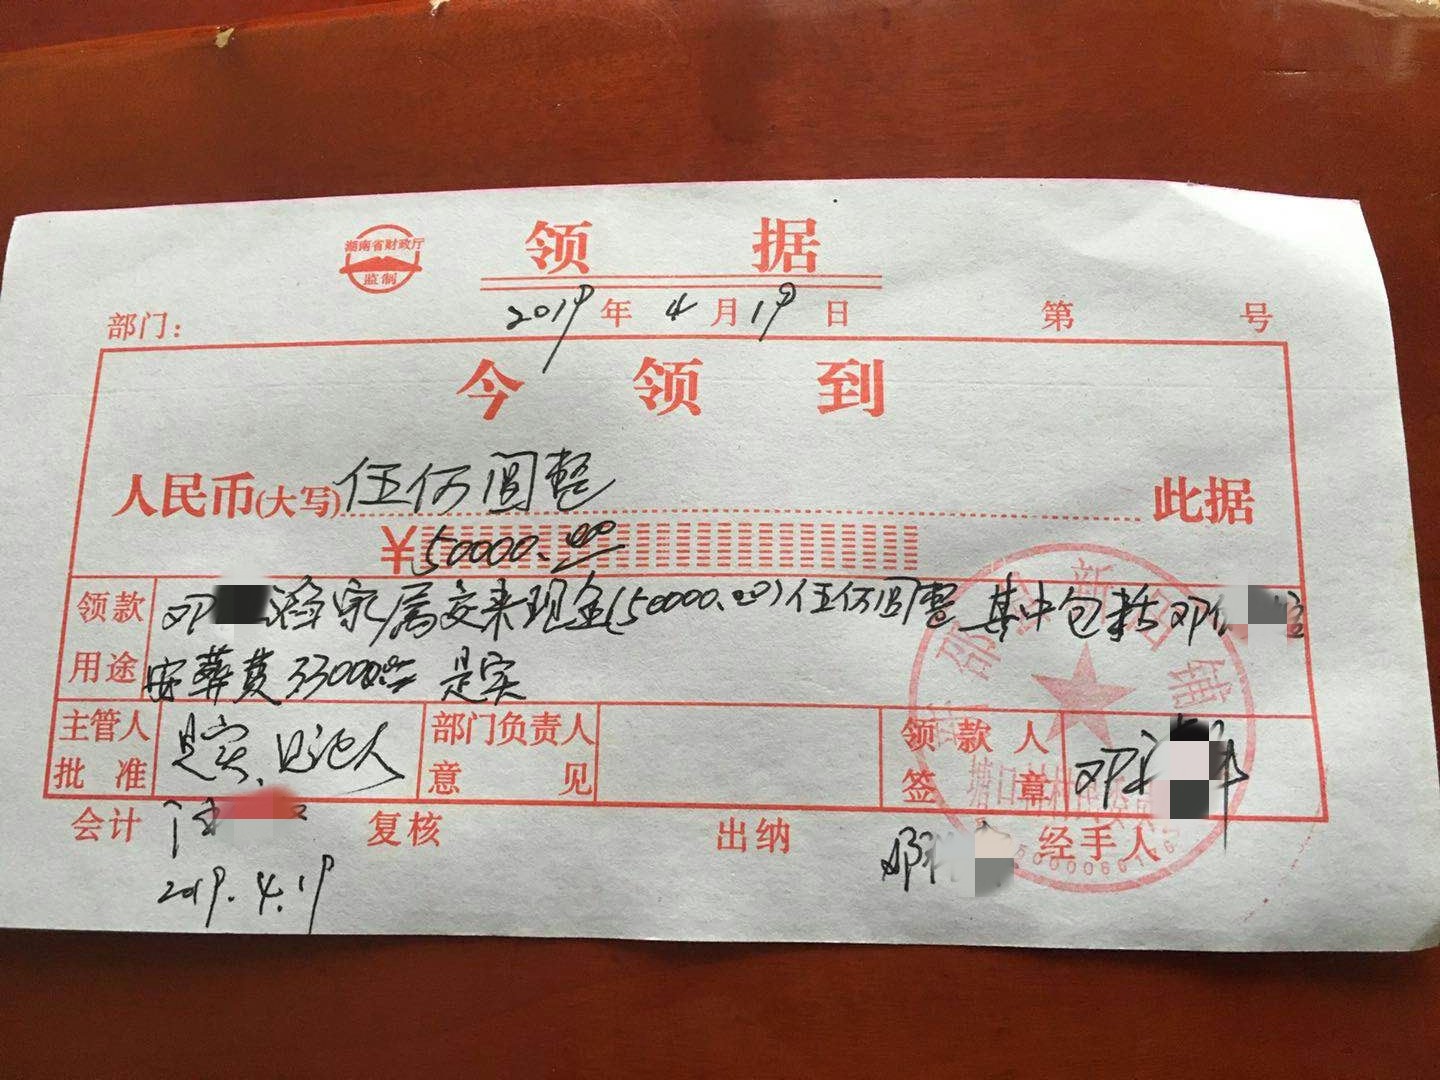 湖南省财政厅
监制
领 据
部门: 2019年4月19日 第 号
今 领 到
人民币(大写)伍仟圆整 此据
¥50000.00
领款用途 邓 家属交来现金(50000.00)伍仟圆整 其中包括邓
安葬费33000 是实
主管人批准 是实、见证人 部门负责人意见 领款人签章 邓
会计 复核 出纳 经手人
2019.4.19
新 铺
塘口村村民委员